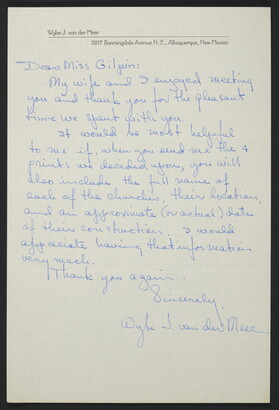 Wybe J. van der Meer
5017 Bunningdale Avenue N.E., Albuquerque, New Mexico
Dear Miss Gilpin:
My wife and I enjoyed meeting
you and thank you for the pleasant
time we spent with you.
It would be most helpful
to me if, when you send me the 4
prints we decided upon, you will
also include the full name of
each of the churches, their location,
and an approximate (or actual) date
of their construction. I would
appreciate having that information
very much.
Thank you again.
Sincerely,
Wybe J. van der Meer